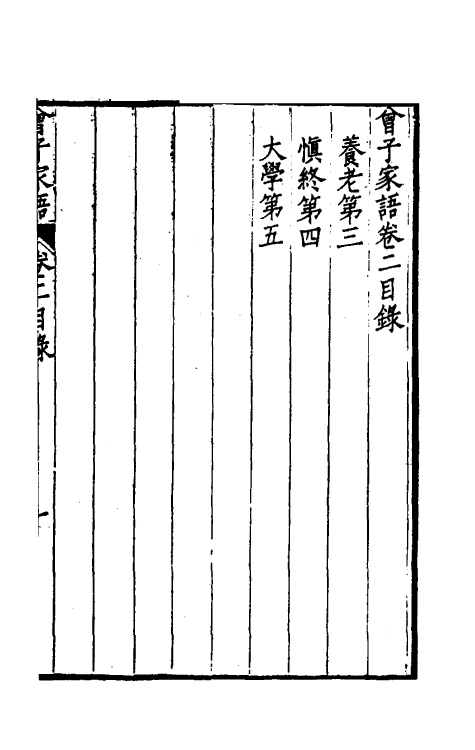 曾子家語卷二目錄
養老第三
慎終第四
大學第五
曾子家語 卷二目錄 一